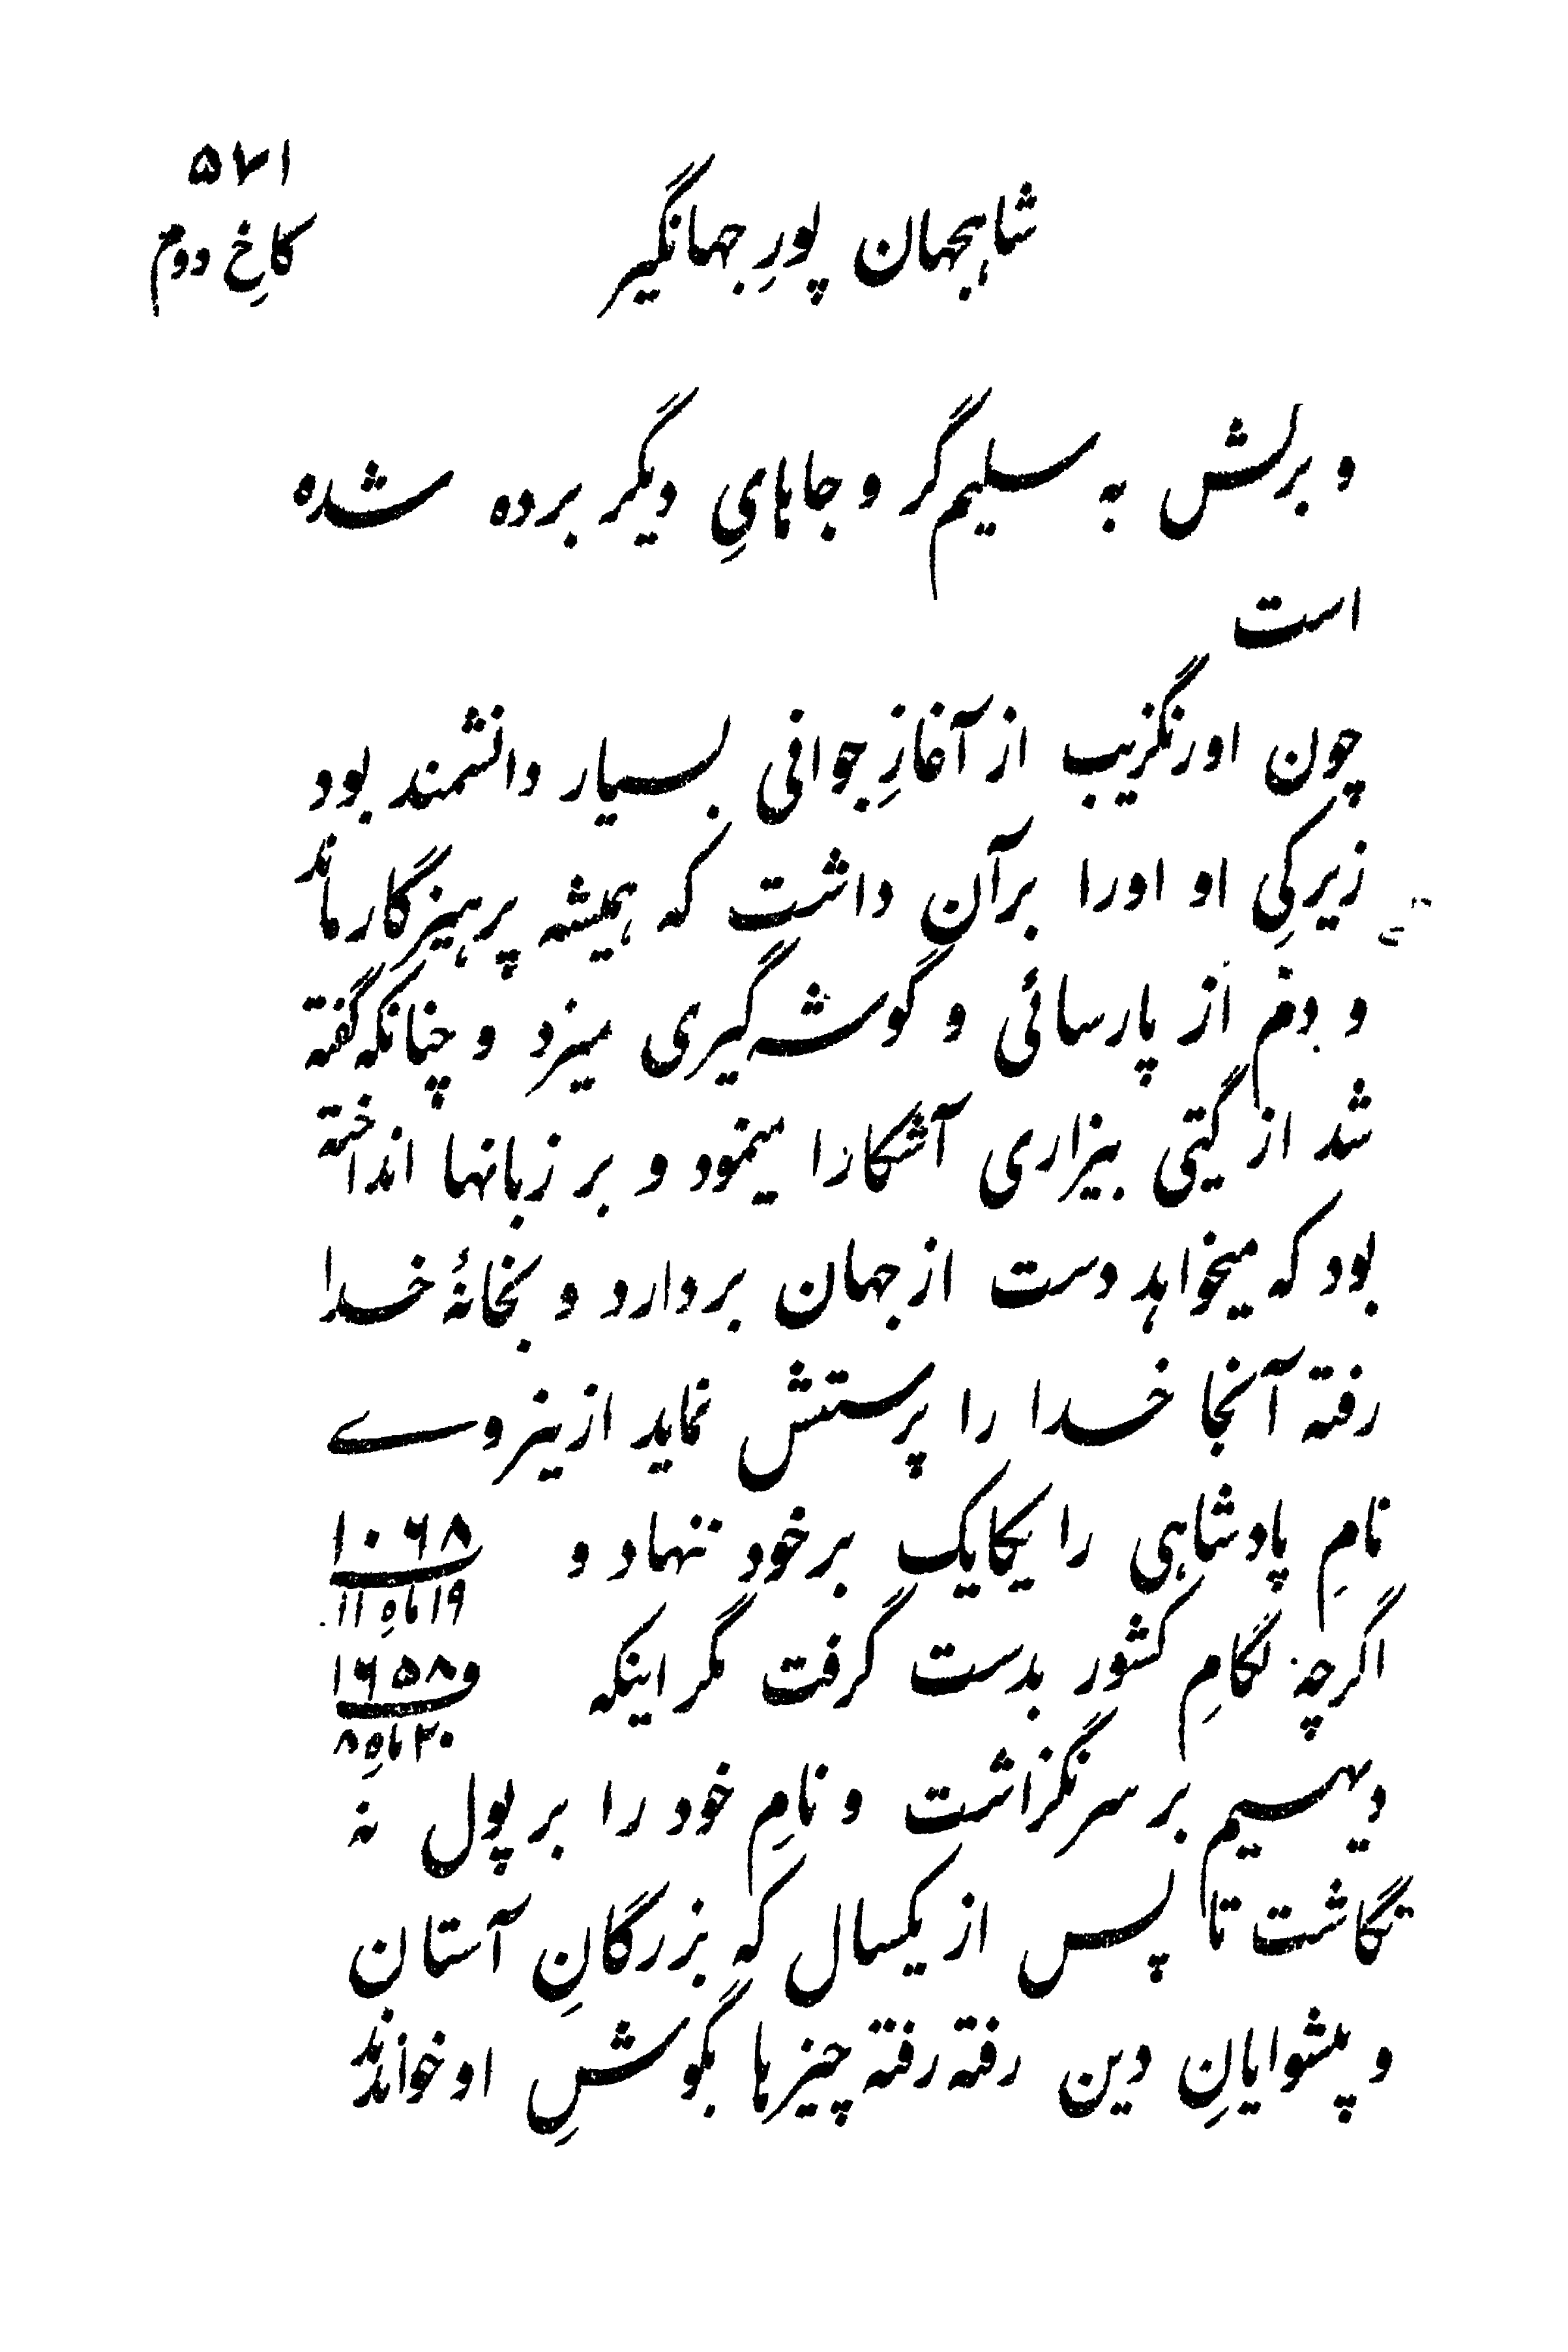 ۵۷۱
کاخِ دوم
شاهجهان پورِ جهانگیر
و برلش به سلیم گر و جاهایِ دیگر برده شده
است
چون اورنگزیب از آغازِ جوانی بسیار دانشمند بود
زیرکیِ او اورا برآن داشت که همیشه پرهیزگار ماند
و دم از پارسائی و گوشه گیری میزد و چنانکه گفته
شد از گیتی بیزاری آشکارا مینمود و بر زبانها انداخته
بود که میخواهد دست از جهان بردارد و بخانهٔ خدا
رفته آنجا خدا را پرستش نماید ازینروے
نامِ پادشاهی را یکایک بر خود ننهاد و
۱۰۶۸
۱۹ ماهِ ۱۱
اگرچه لگامِ کشور بدست گرفت مگر اینکه
و ۱۶۵۸
۲۰ ماهِ ۸
دیهیم بر سر نگزاشت و نامِ خود را بر پول نه
نگاشت تا پس از یکسال که بزرگانِ آستان
و پیشوایانِ دین رفته رفته چیزها بگوشِ او خواندند